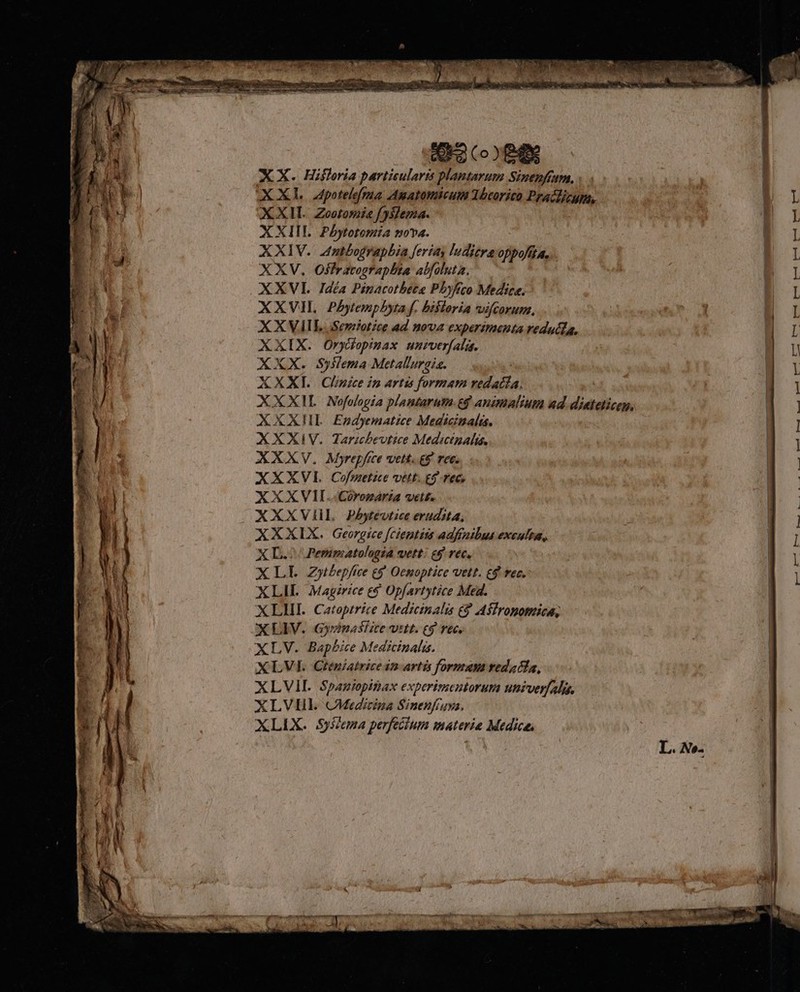 (o)
XX. Hiſtoria particularis plantarum Sinenſium.
XXI. Apoteleſma Anatomicum Theorico Practicum,
XXII. Zootomiæ ſyſtema.
XXIII. Phytotomia nova.
XXIV. Anthographia ſeriæ, ludicræ oppoſita.
XXV. Oſtracographia abſoluta.
XXVI. Idéa Pinacothecæ Phyſico Medicæ.
XXVII. Phytemphyta ſ. hiſtoria viſcorum.
XXVIII. Semiotice ad nova experimenta reducta.
XXIX. Oryctopinax univerſalis.
XXX. Syſtema Metallurgiæ.
XXXI. Clinice in artis formam redacta.
XXXII. Noſologia plantarum & animalium ad diæteticen.
XXXIII. Endyematice Medicinalis.
XXXIV. Taricheutice Medicinalis.
XXXV. Myrepſice vett. & rec.
XXXVI. Coſmetice vett. & rec.
XXXVII. Coronaria vett.
XXXVIII. Phytevtice erudita.
XXXIX. Georgice ſcientiis adfinibus exculta.
XL. Pemmatologia vett. & rec.
XLI. Zythepſice & Oenoptice vett. & rec.
XLII. Magirice & Opſartytice Med.
XLIII. Catoptrice Medicinalis & Aſtronomica,
XLIV. Gymnaſtice vett. & rec.
XLV. Baphice Medicinalis.
XLVI. Cteniatrice in artis formam redacta.
XLVII. Spaniopinax experimentorum univerſalis.
XLVIII. Medicina Sinenſium.
XLIX. Syſtema perfectum materiæ Medicæ.
L. No-